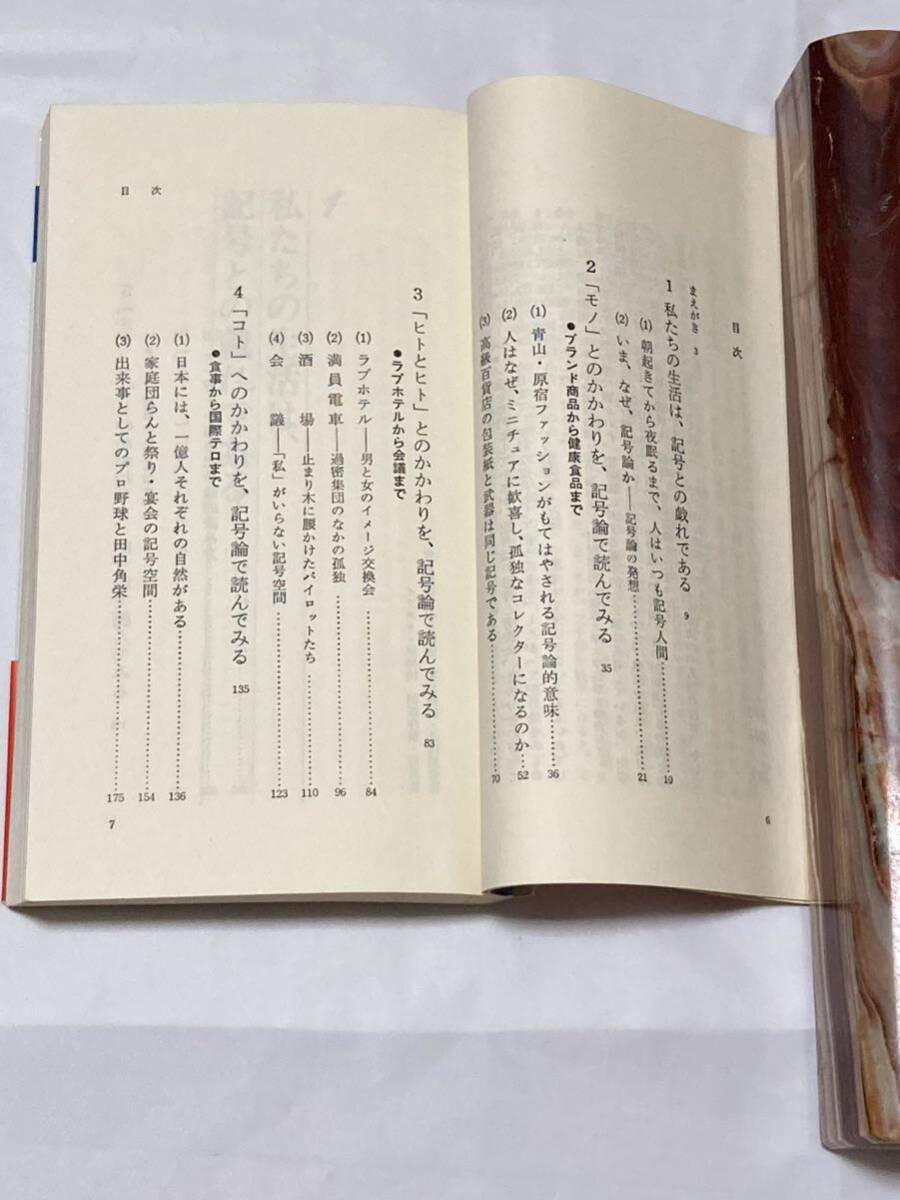 目次
まえがき 3
1 私たちの生活は、記号との戯れである 9
(1) 朝起きてから夜眠るまで、人はいつも記号人間………10
(2) いま、なぜ、記号論か――記号論の発想………21
2 「モノ」とのかかわりを、記号論で読んでみる 35
●ブランド商品から健康食品まで
(1) 青山・原宿ファッションがもてはやされる記号論的意味………36
(2) 人はなぜ、ミニチュアに歓喜し、孤独なコレクターになるのか………52
(3) 高級百貨店の包装紙と武器は同じ記号である………70
6
目次
3 「ヒトとヒト」とのかかわりを、記号論で読んでみる 83
●ラブホテルから会議まで
(1) ラブホテル――男と女のイメージ交換会………84
(2) 満員電車――過密集団のなかの孤独………96
(3) 酒場――止まり木に腰かけたパイロットたち………110
(4) 会議――「私」がいらない記号空間………123
4 「コト」へのかかわりを、記号論で読んでみる 135
●食事から国際テロまで
(1) 日本には、一億人それぞれの自然がある………136
(2) 家庭団らんと祭り・宴会の記号空間………154
(3) 出来事としてのプロ野球と田中角栄………175
7